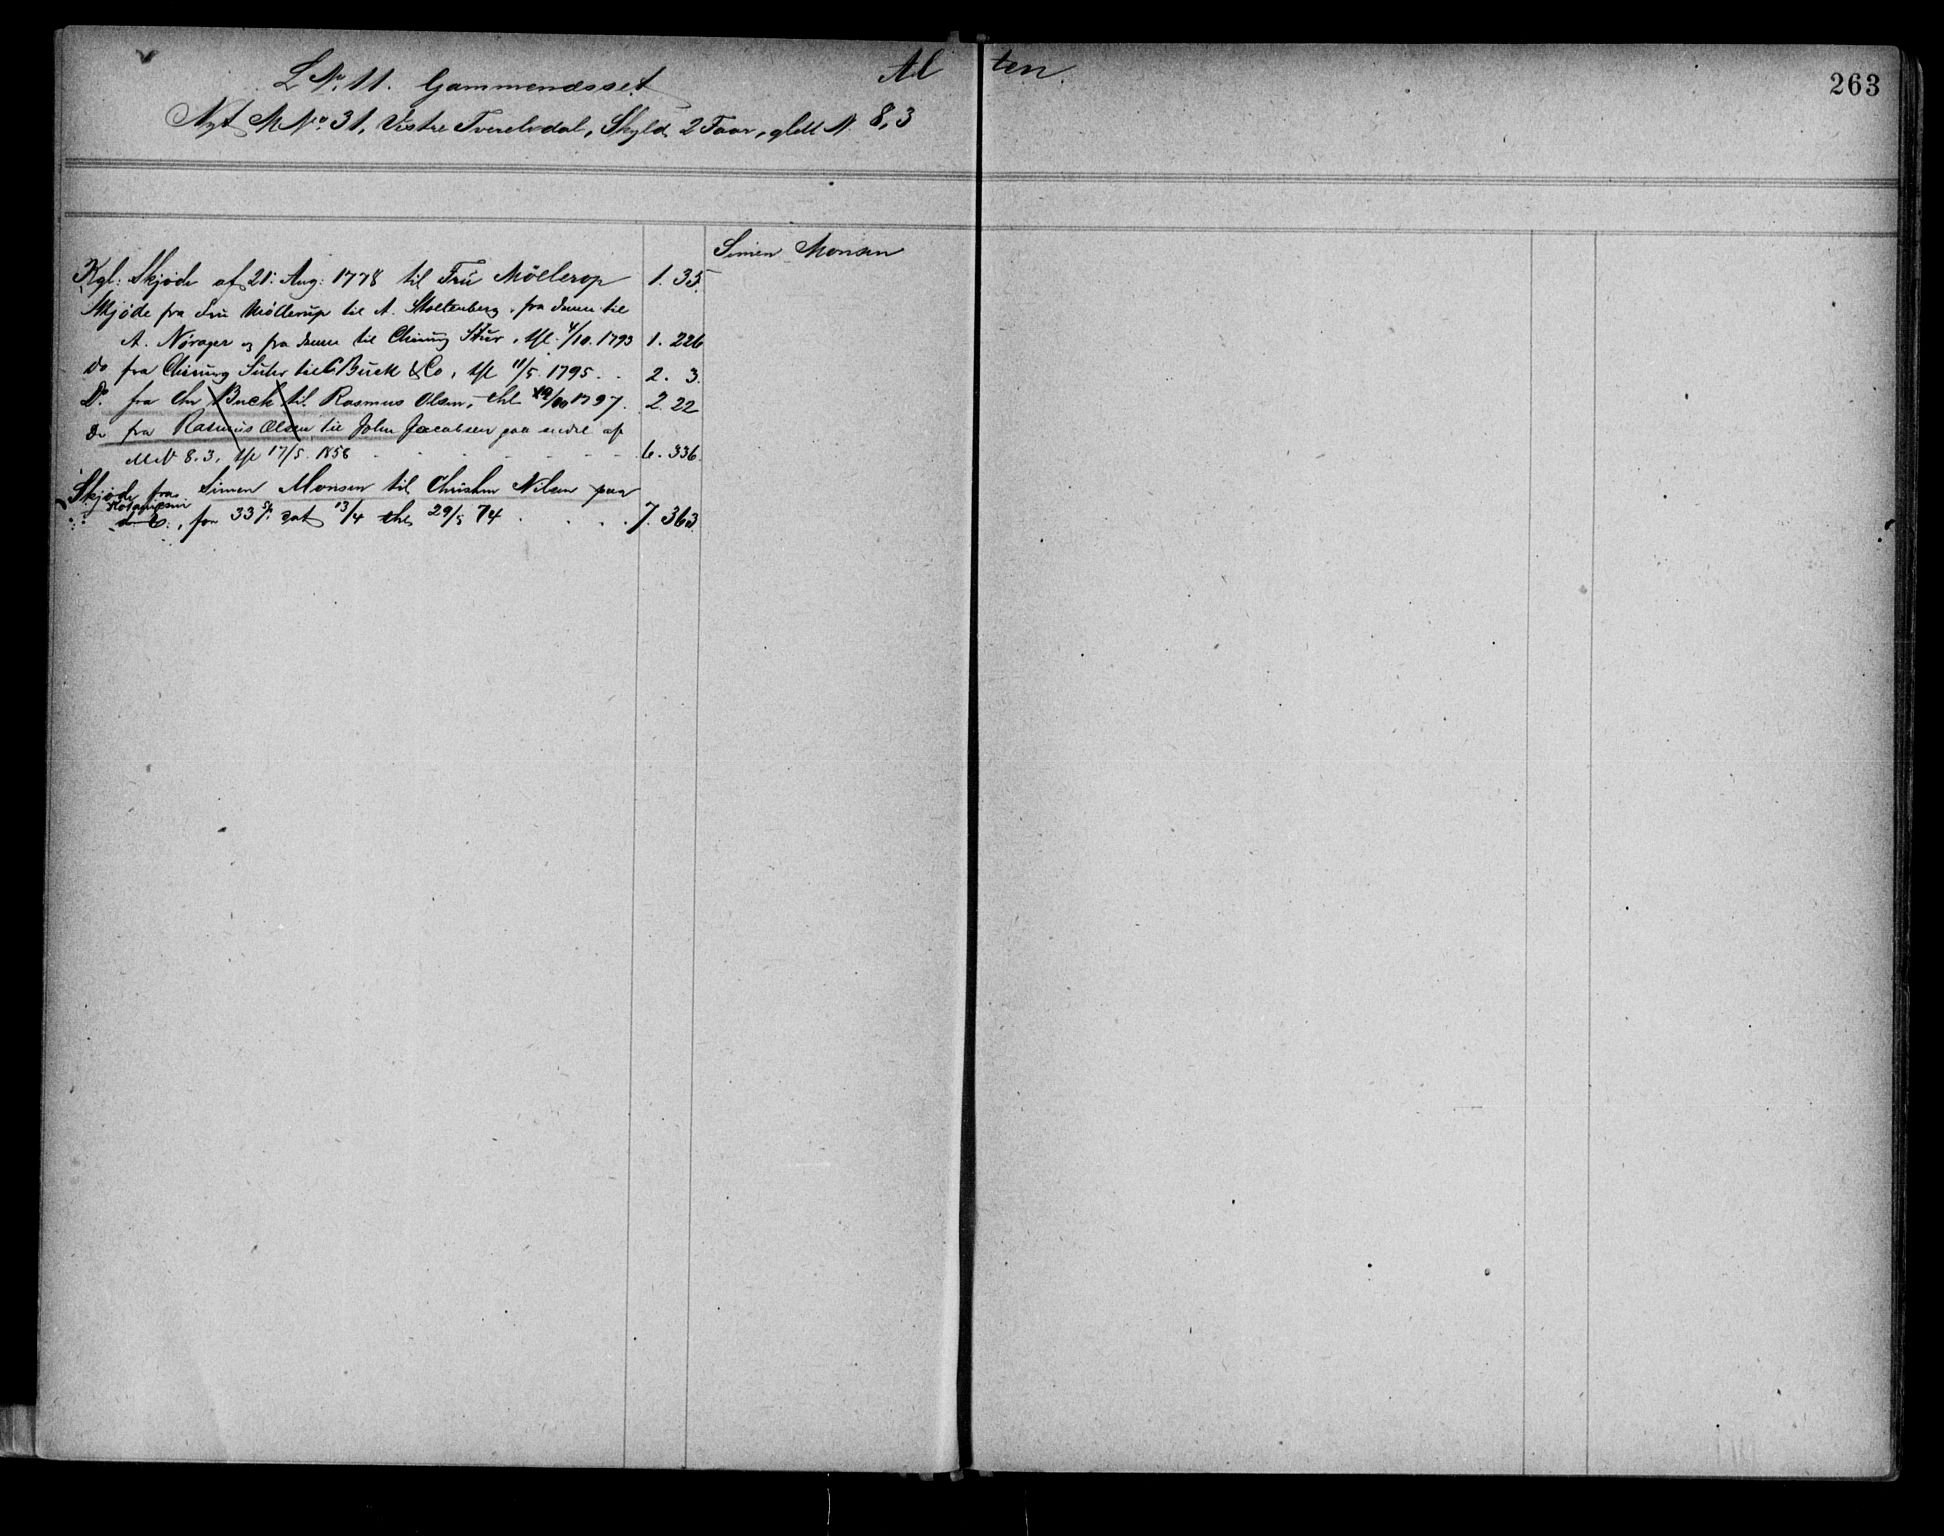 Al ten.
263
L No. 11. Gammenæsset
Nyt M No. 31, Vestre Tverelvdal, Skyld 2 Faar, gldt N. 8,3
Simen Monsen
Kgl: Skjøde af 21: Aug: 1778 til Fru Möllerop 1. 35.
Skjöde fra Fru Möllerup til A. Stoltenberg, fra denne til
A. Nörager og fra denne til Chirurg 4/10. 1793 1. 226
Do fra Chirurg til C Buck & Co, thl 11/5. 1795. 2. 3.
Do. fra Chr Buck til Rasmus Olsen, thl 1797. 2. 22
Do fra Rasmus Olsen til John Jacobsen paa endel af
M N 8.3, thl 17/5. 1856 6. 336.
Skjøde fra Simen Monsen til Nilsen paa
for 33 Sp. dat 13/4 thl 29/5 74 7. 363.